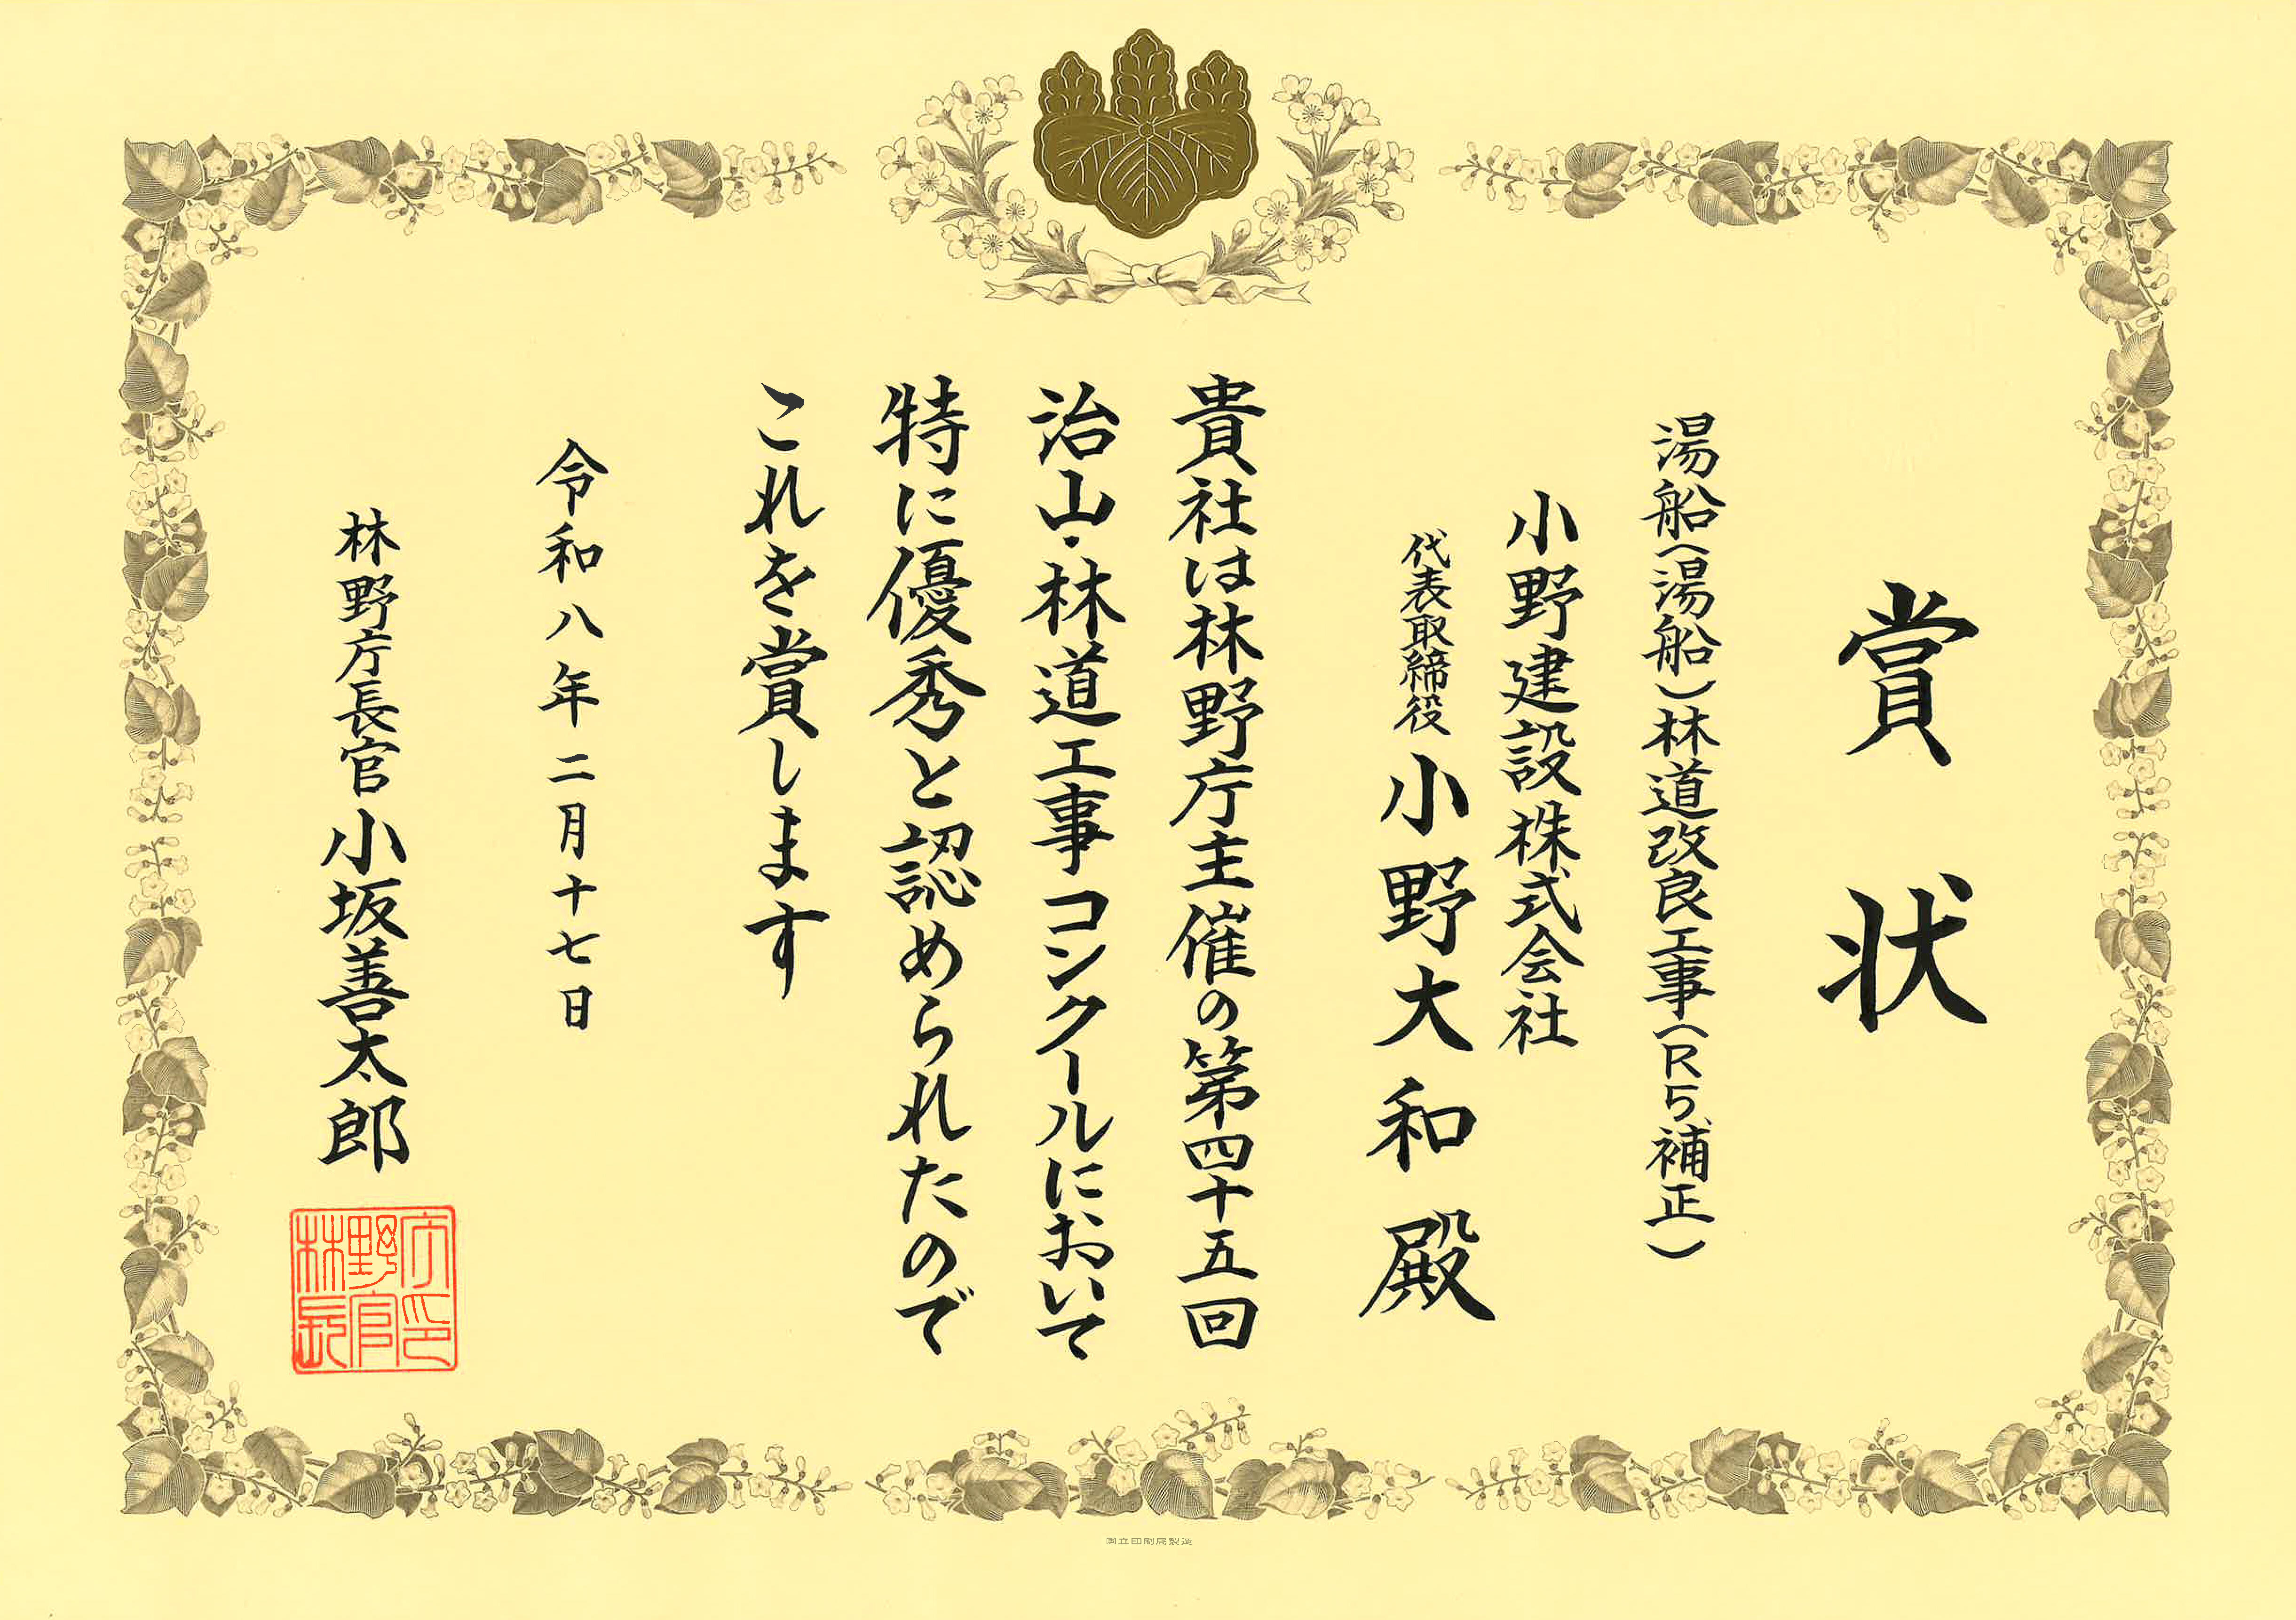 賞状
湯船(湯船)林道改良工事(R5補正)
小野建設株式会社
代表取締役 小野大和殿
貴社は林野庁主催の第四十五回
治山・林道工事コンクールにおいて
特に優秀と認められたので
これを賞します
令和八年二月十七日
林野庁長官 小坂善太郎
林野庁長官印
国立印刷局製造